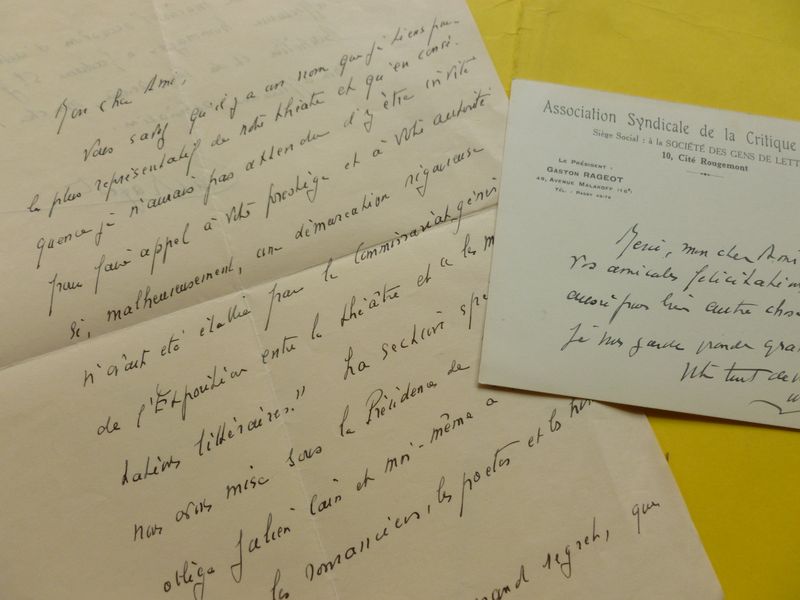 Mon cher Ami,
Vous savez qu'il y a un nom que je tiens pour
le plus représentatif de notre théâtre et qu'en consé-
quence je n'aurais pas attendu d'y être invité
pour faire appel à votre prestige et à votre autorité
si, malheureusement, une démarcation rigoureuse
n'avait été établie par le Commissariat génér
de l'Exposition entre le théâtre et "les m
tations littéraires." La section spé
nous avons mise sous la Présidence de
oblige Julien Cain et moi-même à
les romanciers, les poètes et les
grand regret, que
Association Syndicale de la Critique
Siège Social : à la SOCIÉTÉ DES GENS DE LETT
10, Cité Rougemont
LE PRÉSIDENT :
GASTON RAGEOT
49, AVENUE MALAKOFF (16e)
TÉL. : PASSY
Merci, mon cher Ami
vos amicales félicitations
aussi pour bien autre chose
Je vous garde grande grat
Votre tout dé